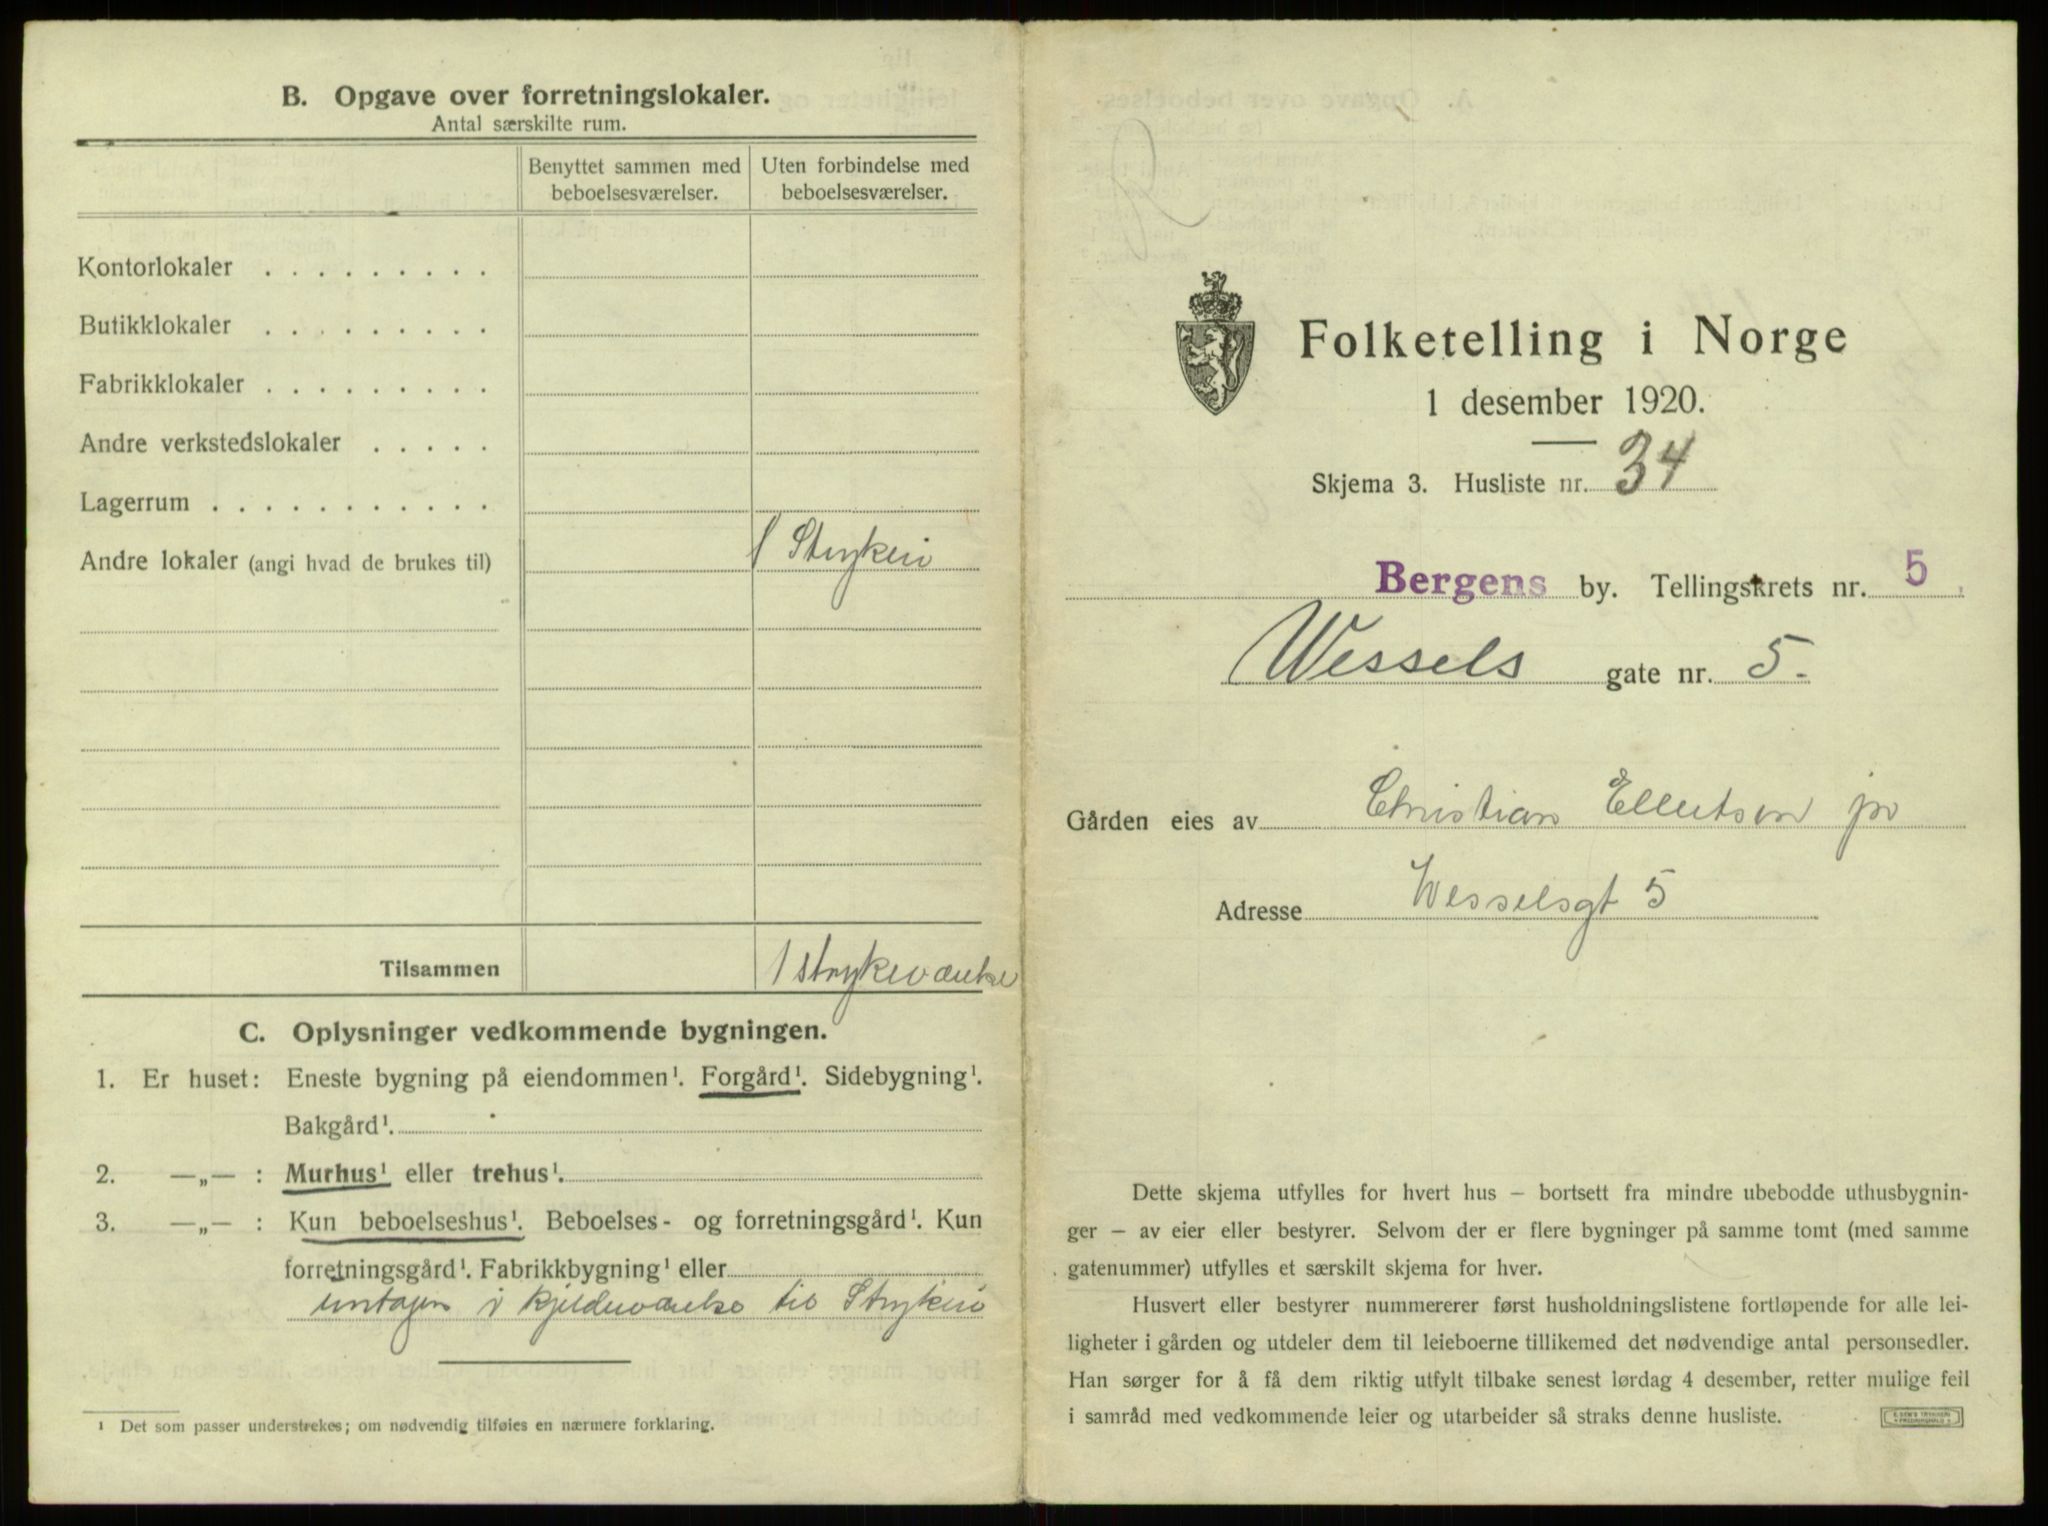 B. Opgave over forretningslokaler.
Antal særskilte rum.
Benyttet sammen med beboelsesværelser.
Uten forbindelse med beboelsesværelser.
Kontorlokaler . . . . . . . . .
Butikklokaler . . . . . . . . .
Fabrikklokaler . . . . . . . . .
Andre verkstedslokaler . . . . .
Lagerrum . . . . . . . . . . .
Andre lokaler (angi hvad de brukes til) 1 Strykeri
Tilsammen 1 strykeværelse
C. Oplysninger vedkommende bygningen.
1. Er huset: Eneste bygning på eiendommen¹. Forgård¹. Sidebygning¹.
Bakgård¹.
2. —„— : Murhus¹ eller trehus¹.
3. —„— : Kun beboelseshus¹. Beboelses- og forretningsgård¹. Kun
forretningsgård¹. Fabrikkbygning¹ eller
untagen i kjelderværelse til Strykeri
¹ Det som passer understrekes; om nødvendig tilføies en nærmere forklaring.
Folketelling i Norge
1 desember 1920.
Skjema 3. Husliste nr. 34
Bergens by. Tellingskrets nr. 5
Wessels gate nr. 5.
Gården eies av Christian Ellertsen jr
Adresse Wesselsgt 5
Dette skjema utfylles for hvert hus – bortsett fra mindre ubebodde uthusbygnin-
ger – av eier eller bestyrer. Selvom der er flere bygninger på samme tomt (med samme
gatenummer) utfylles et særskilt skjema for hver.
Husvert eller bestyrer nummererer først husholdningslistene fortløpende for alle lei-
ligheter i gården og utdeler dem til leieboerne tillikemed det nødvendige antal personsedler.
Han sørger for å få dem riktig utfylt tilbake senest lørdag 4 desember, retter mulige feil
i samråd med vedkommende leier og utarbeider så straks denne husliste.